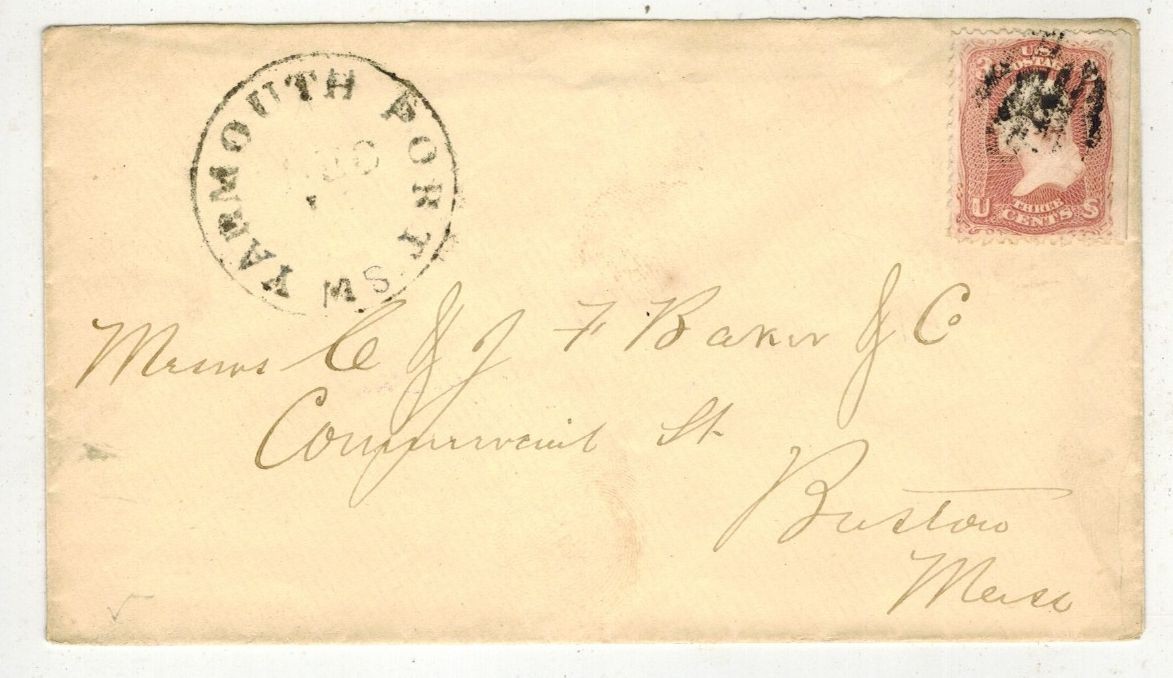 YARMOUTH PORT MS
U.S. POSTAGE
U THREE CENTS S
Messrs C & J F Baker & Co
Commercial St
Boston
Mass